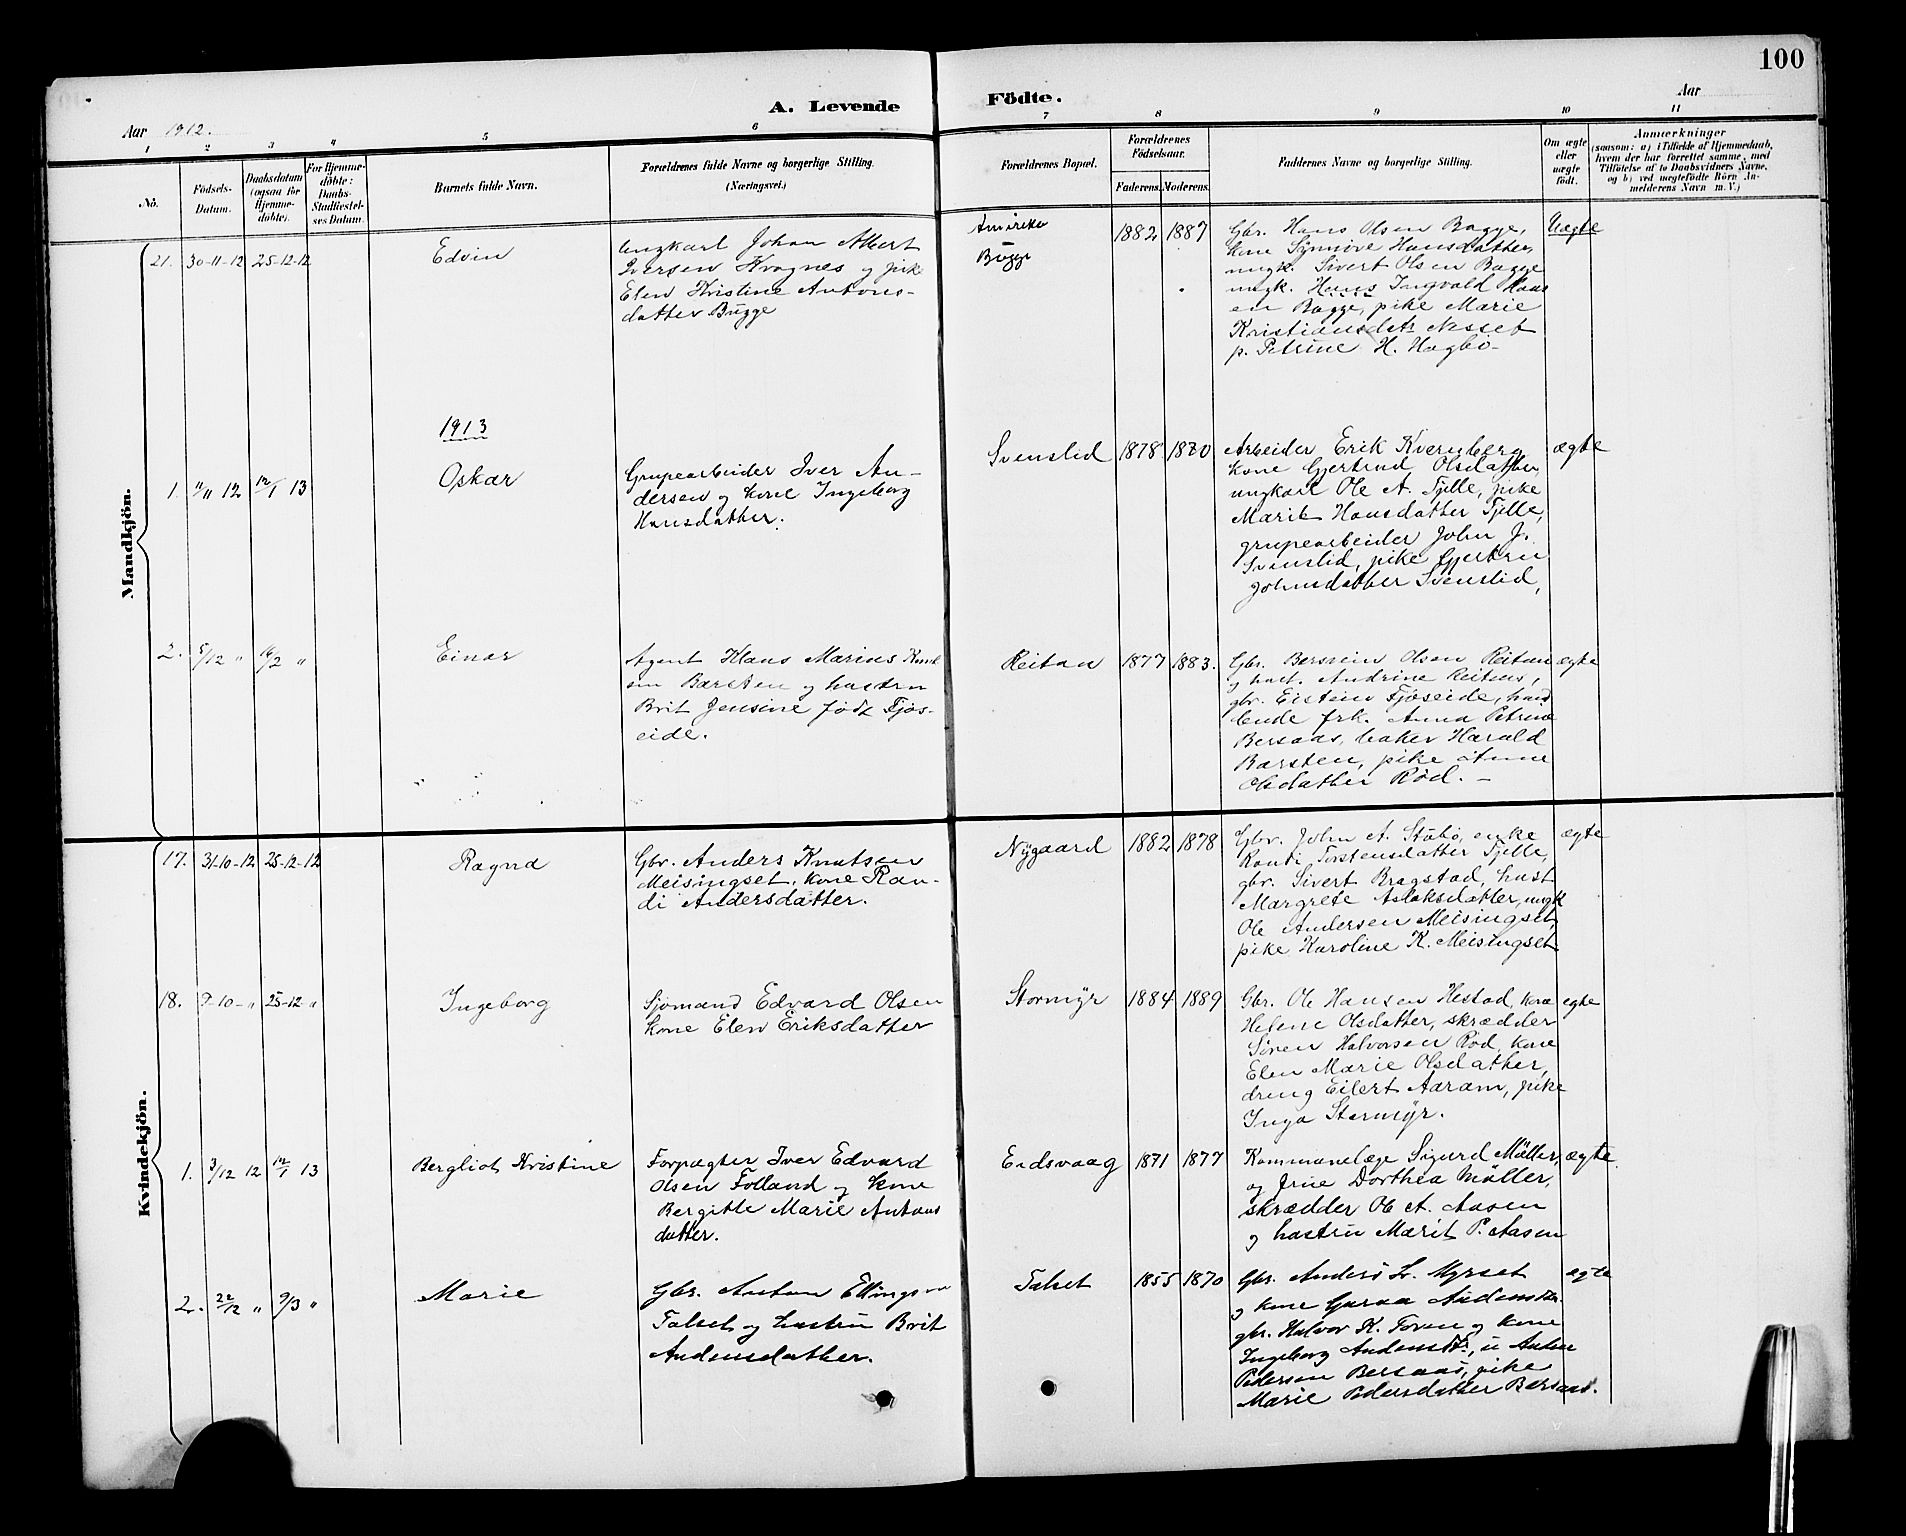 100
A. Levende Födte.
Aar 1912.
Aar
1 2 3 4 5 6 7 8 9 10 11
No.
Födsels-
Datum.
Daabsdatum
(ogsaa for
Hjemme-
döbte).
For Hjemme-
döbte:
Daabs-
Stadfæstel-
ses Datum.
Barnets fulde Navn.
Forældrenes fulde Navne og borgerlige Stilling.
(Næringsvei.)
Forældrenes Bopæl.
Forældrenes
Födselsaar.
Faderens. Moderens.
Faddernes Navne og borgerlige Stilling.
Om ægte
eller
uægte
födt.
Anmærkninger
(saasom: a) i Tilfælde af Hjemmedaab,
hvem der har forrettet samme, med
Tilföielse af to Daabsvidners Navne,
og b) ved uægtefödte Börn An-
melderens Navn m. V.)
Mandkjön.
21. 30-11-12 25-12-12
Edvin
Ungkarl Johan Albert
Iversen Kvagnes og pike
Elen Kristine Antons-
datter Bugge
Amerika
Bugge
1882 1887
Gbr. Hans Olsen Bagge,
kone Synnöve Hansdatter,
ungk. Sivert Olsen Bagge
ungk. Hans Ingvald Hans
en Bagge, pike Marie
Kristiansdtr Nesset
p. Petrine H. Hagbö-
Uægte
1913
1. 11/11 12 12/1 13
Oskar
Grupearbeider Iver An-
dersen og kone Ingeborg
Hansdatter.
Svenslid
1878 1880
Arbeider Erik Kvernberg
kone Gjertrud Olsdatter
ungkarl Ole A. Tjelle, pike
Marit Hansdatter Tjelle,
grupearbeider John J.
Svenslid, pike Gjertru
Johnsdatter Svenslid,
ægte
2. 5/12 " 16/2 "
Einar
Agent Hans Marius Knud
sen Barsten og hustru
Brit Jensine født Fjøs-
eide.
Reitan
1877 1883.
Gbr. Bersvein Olsen Reitan
og hust. Andrine Reitens,
gbr. Eistein Fjøseide, hand
lende frk. Anna Petrine
Bersaas, baker Harald
Barsten, pike Anne
Olsdatter Rød. -
ægte
Kvindekjön.
17. 31-10-12 25-12-12
Ragna
Gbr. Anders Knutsen
Meisingset, kone Ran-
di Andersdatter.
Nygaard
1882 1878
Gbr. John A. Stubø, enke
Randi Torstensdatter Tjelle,
gbr. Sivert Bragstad, hust
Margrete Aslaksdatter, ungk
Ole Andersen Meisingset,
pike Karoline K. Meisingset
ægte
18. 9-10-" 25-12-"
Ingeborg
Sjømand Edvard Olsen
kone Elen Eriksdatter
Stormyr
1884 1889
Gbr. Ole Hansen Hestad, kone
Helene Olsdatter, skrædder
Sören Halvorsen Rød, kone
Elen Marie Olsdatter,
dreng Eilert Aaram, pike
Inga Stormyr.
ægte
1. 3/12 12 12/1 13
Bergliot Kristine
Forpagter Iver Edvard
Olsen Folland og kone
Bergitte Marie Antons
datter.
Eidsvaag
1871 1877
Kommunelæge Sigurd Müller,
og frue Dorthea Müller,
skrædder Ole A. Aasen
og hustru Marit P. Aasen
ægte
2. 22/12 " 9/3 "
Marie
Gbr. Anton Ellingsen
Talset og hustru Brit
Andersdatter.
Talset
1855 1870
Gbr. Anders L. Myrset
og kone Guraa Andersdtr.
gbr. Halvor K. Toven og kone
Ingeborg Andersdtr, u Anton
Pedersen Bersaas, pike
Marie Pedersdatter Bersaas.
ægte